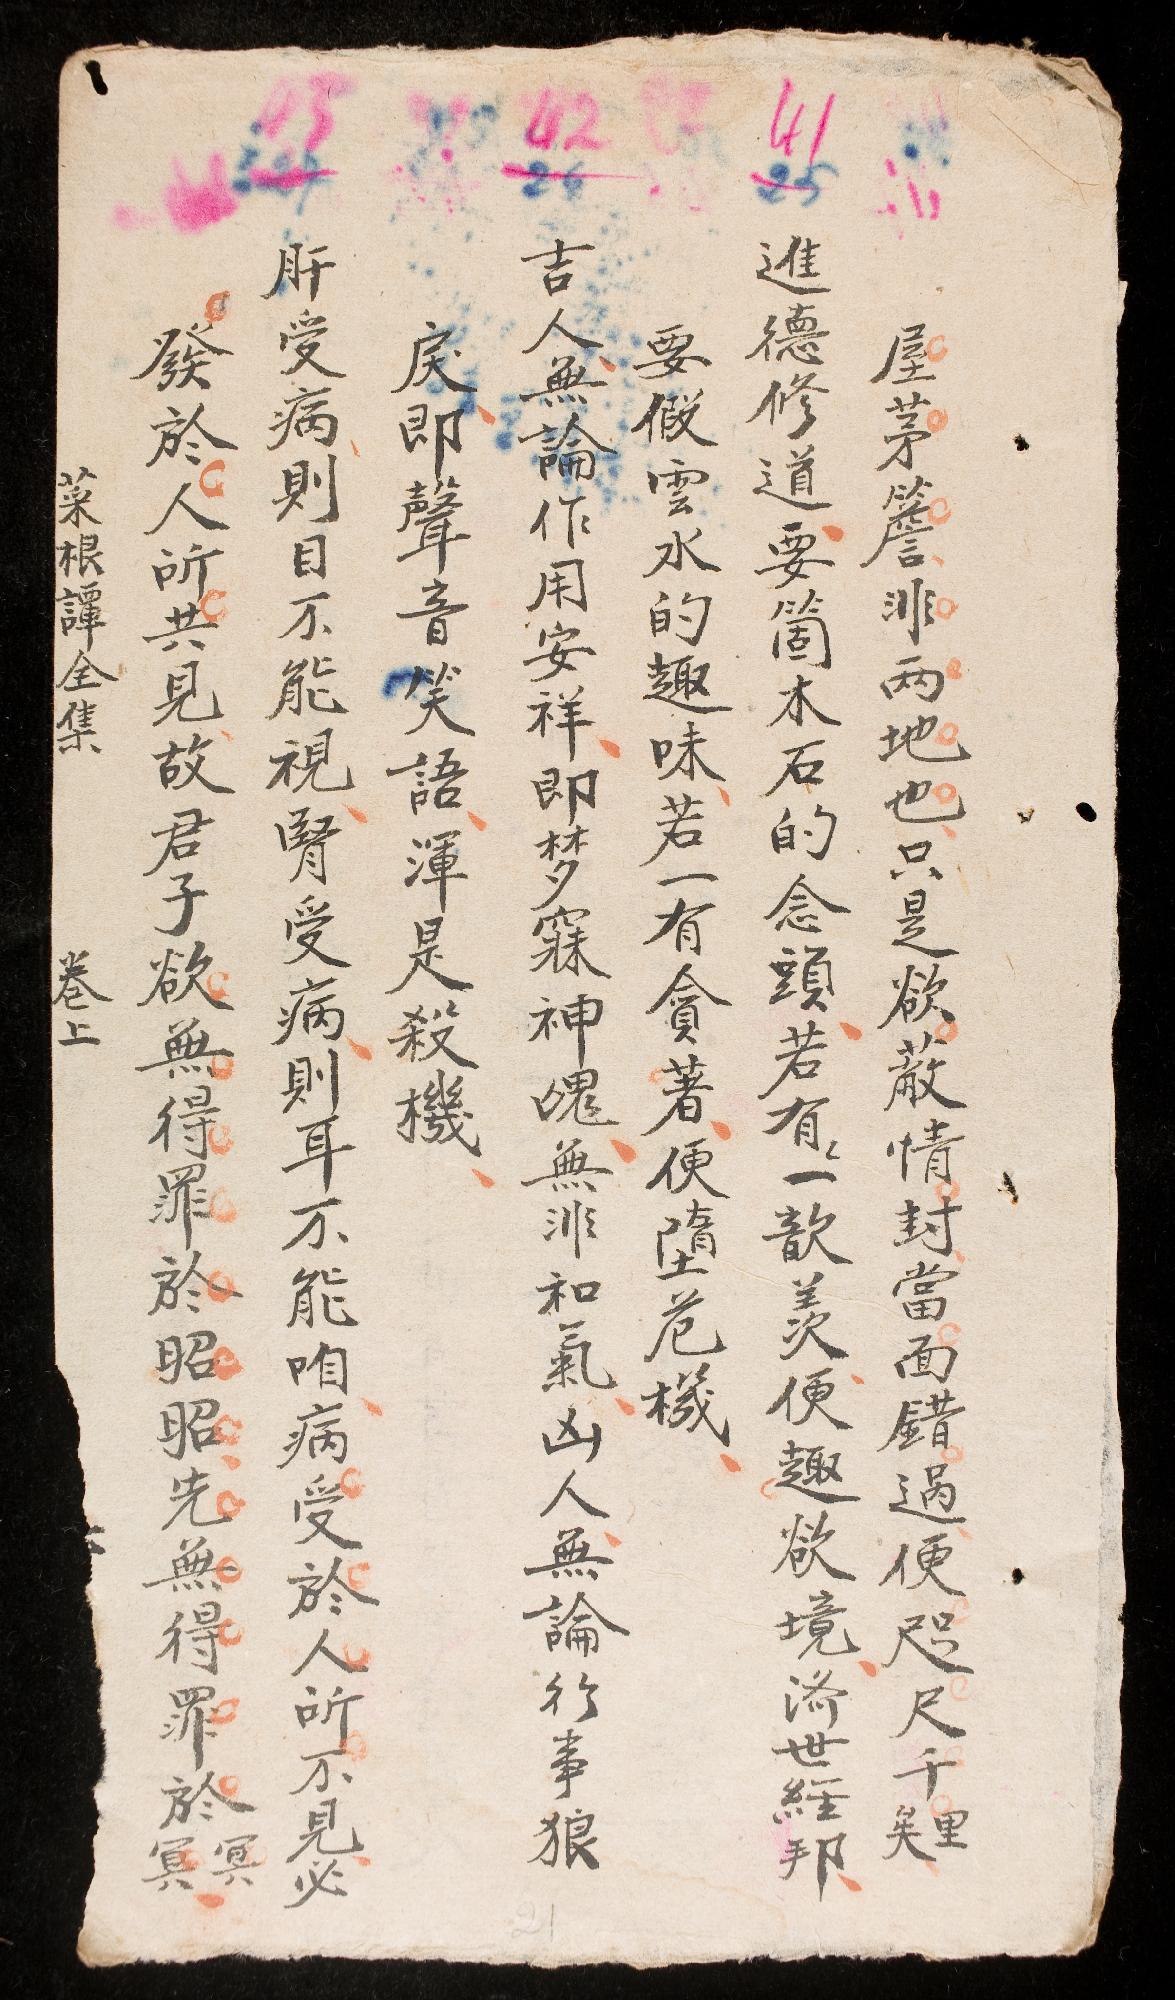 41
25
42
26
43
屋茅簷非兩地也只是欲蔽情封當面錯過便咫尺千里矣
進德修道要箇木石的念頭若有一歆羨便趣欲境濟世經邦
要假雲水的趣味若一有貪著便墮危機
吉人無論作用安祥即梦寐神魂無非和氣凶人無論行事狼
戾即聲音笑語渾是殺機
肝受病則目不能視腎受病則耳不能咱病受於人所不見必
發於人所共見故君子欲無得罪於昭昭先無得罪於冥冥
菜根譚全集 卷上
21